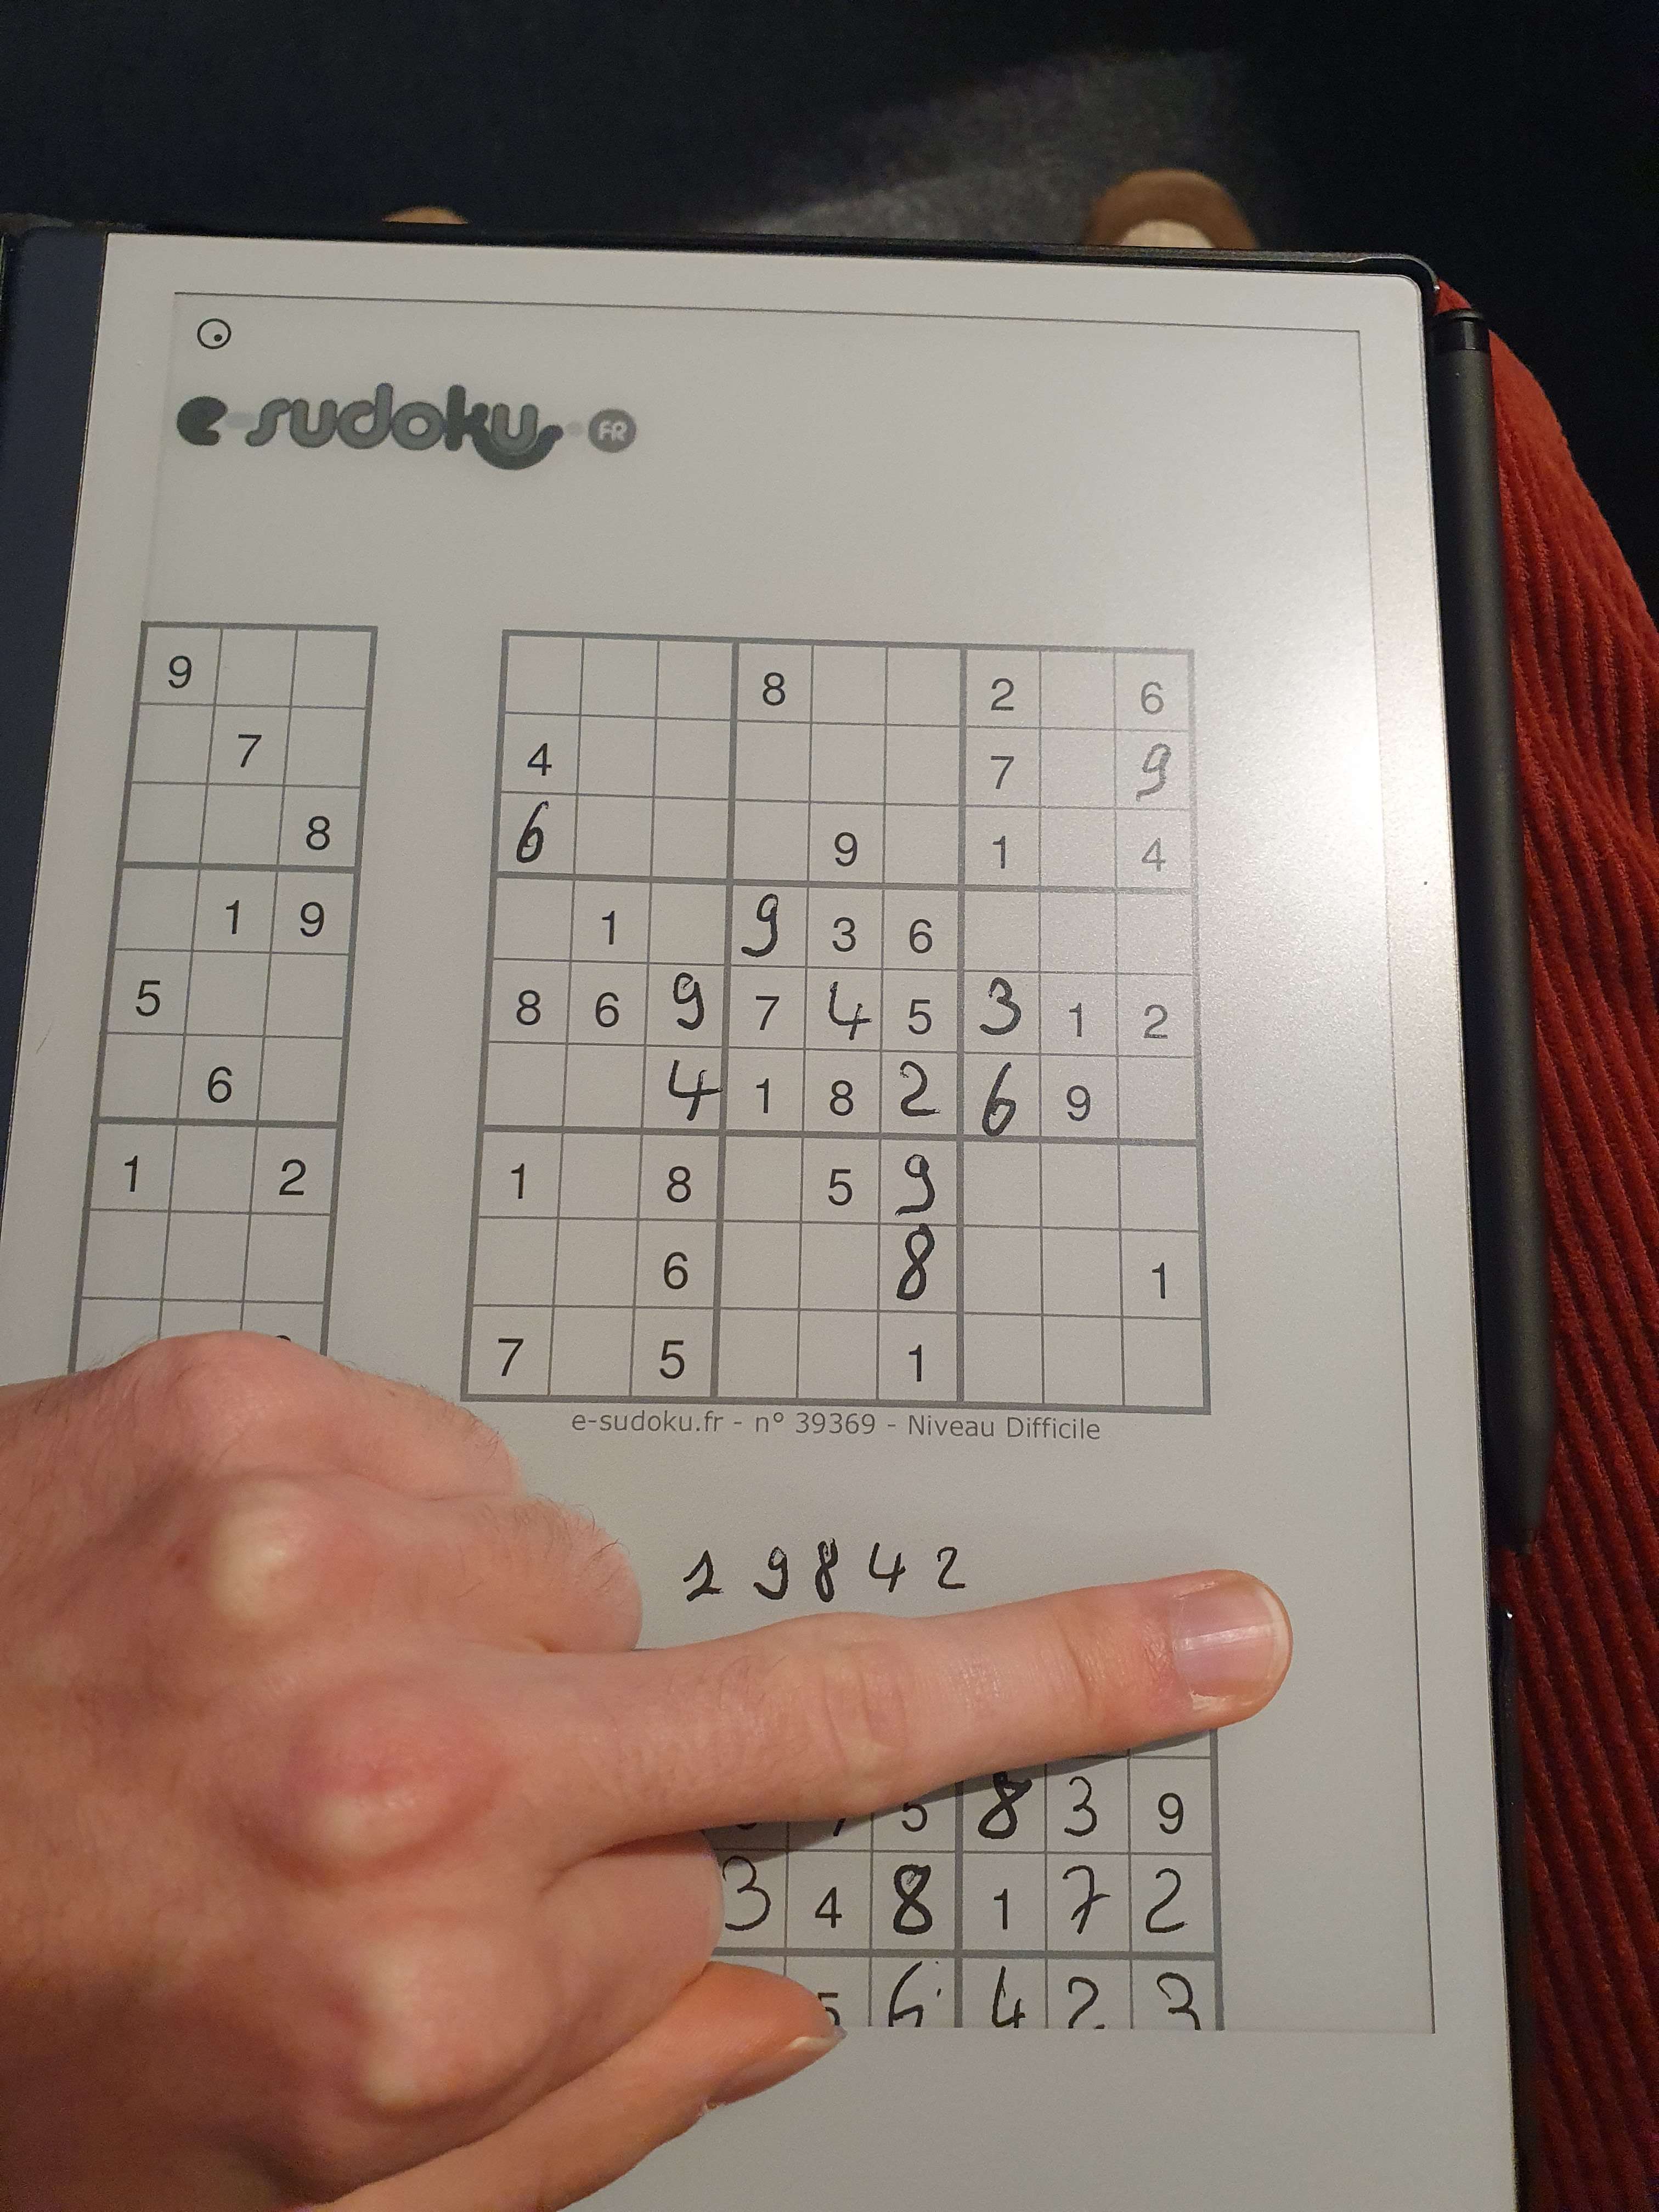 e-sudoku.FR
9
7
8
1 9
5
6
1 2
8 2 6
4 7 9
6 9 1 4
1 9 3 6
8 6 9 7 4 5 3 1 2
4 1 8 2 6 9
1 8 5 9
6 8 1
7 5 1
e-sudoku.fr - n° 39369 - Niveau Difficile
1 9 8 4 2
5 8 3 9
3 4 8 1 7 2
5 6 4 2 3